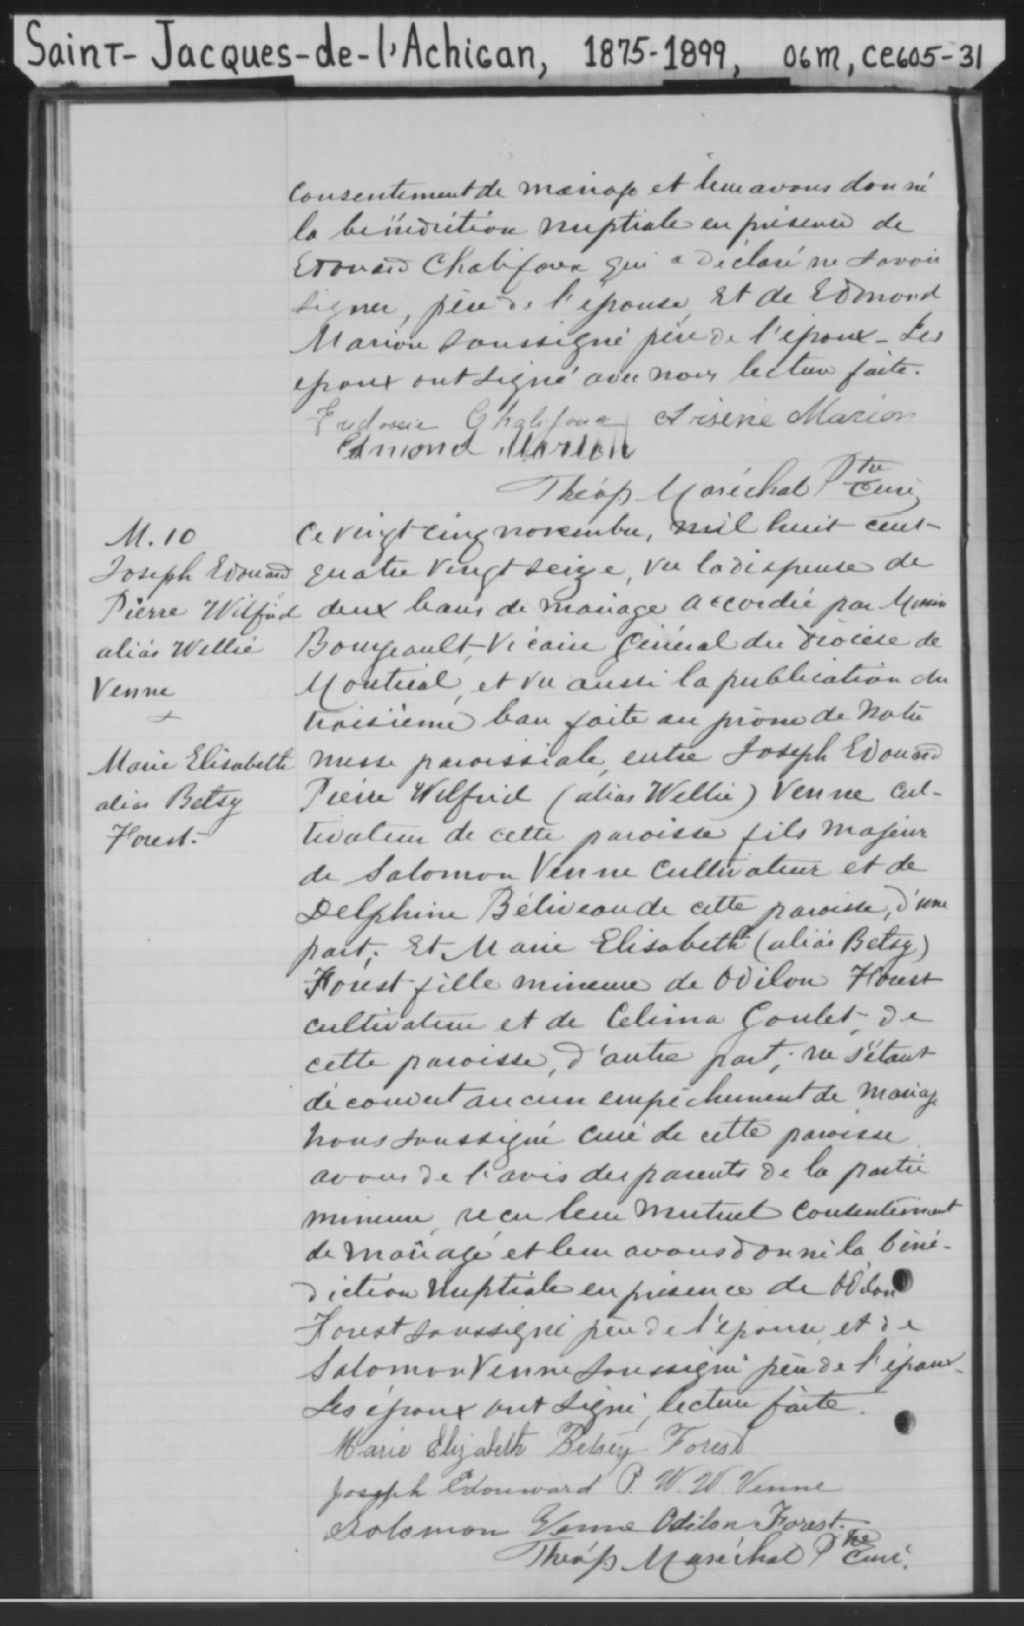 Saint-Jacques-de-l'Achigan, 1875-1899, 06m, CE605-31
consentement de mariage et leur avons donné
la bénédiction nuptiale en présence de
Edouard Chalifoux qui a déclaré ne savoir
signer, père de l'épouse, et de Edmond
Marion soussigné père de l'époux - Les
époux ont signé avec nous lecture faite.
Chalifoux Arsène Marion
Edmond Marion
Théop Maréchal Ptre Curé
M. 10
Joseph Edouard
Pierre Wilfrid
alias Willie
Venne
+
Marie Elisabeth
alias Betsy
Forest.
Ce vingt cinq novembre, mil huit cent
quatre vingt seize, vu la dispense de
deux bans de mariage accordée par Messire
Bourgeault, Vicaire Général du diocèse de
Montréal, et vu aussi la publication du
troisième ban faite au prône de notre
messe paroissiale, entre Joseph Edouard
Pierre Wilfrid (alias Willie) Venne cul-
tivateur de cette paroisse fils majeur
de Salomon Venne cultivateur et de
Delphine Béliveau de cette paroisse, d'une
part; Et Marie Elisabeth (alias Betsy)
Forest fille mineure de Odilon Forest
cultivateur et de Celima Goulet, de
cette paroisse, d'autre part; ne s'étant
découvert aucun empêchement de mariage
nous soussigné curé de cette paroisse
avons de l'avis des parents de la partie
mineure, reçu leur mutuel consentement
de mariage et leur avons donné la béné-
diction nuptiale en présence de Odilon
Forest soussigné père de l'épouse et de
Salomon Venne soussigné père de l'époux.
Les époux ont signé, lecture faite.
Marie Elizabeth Betsey Forest
Joseph Edouward P. W. W. Venne
Solomon Venne Odilon Forest.
Théop Maréchal Ptre Curé.